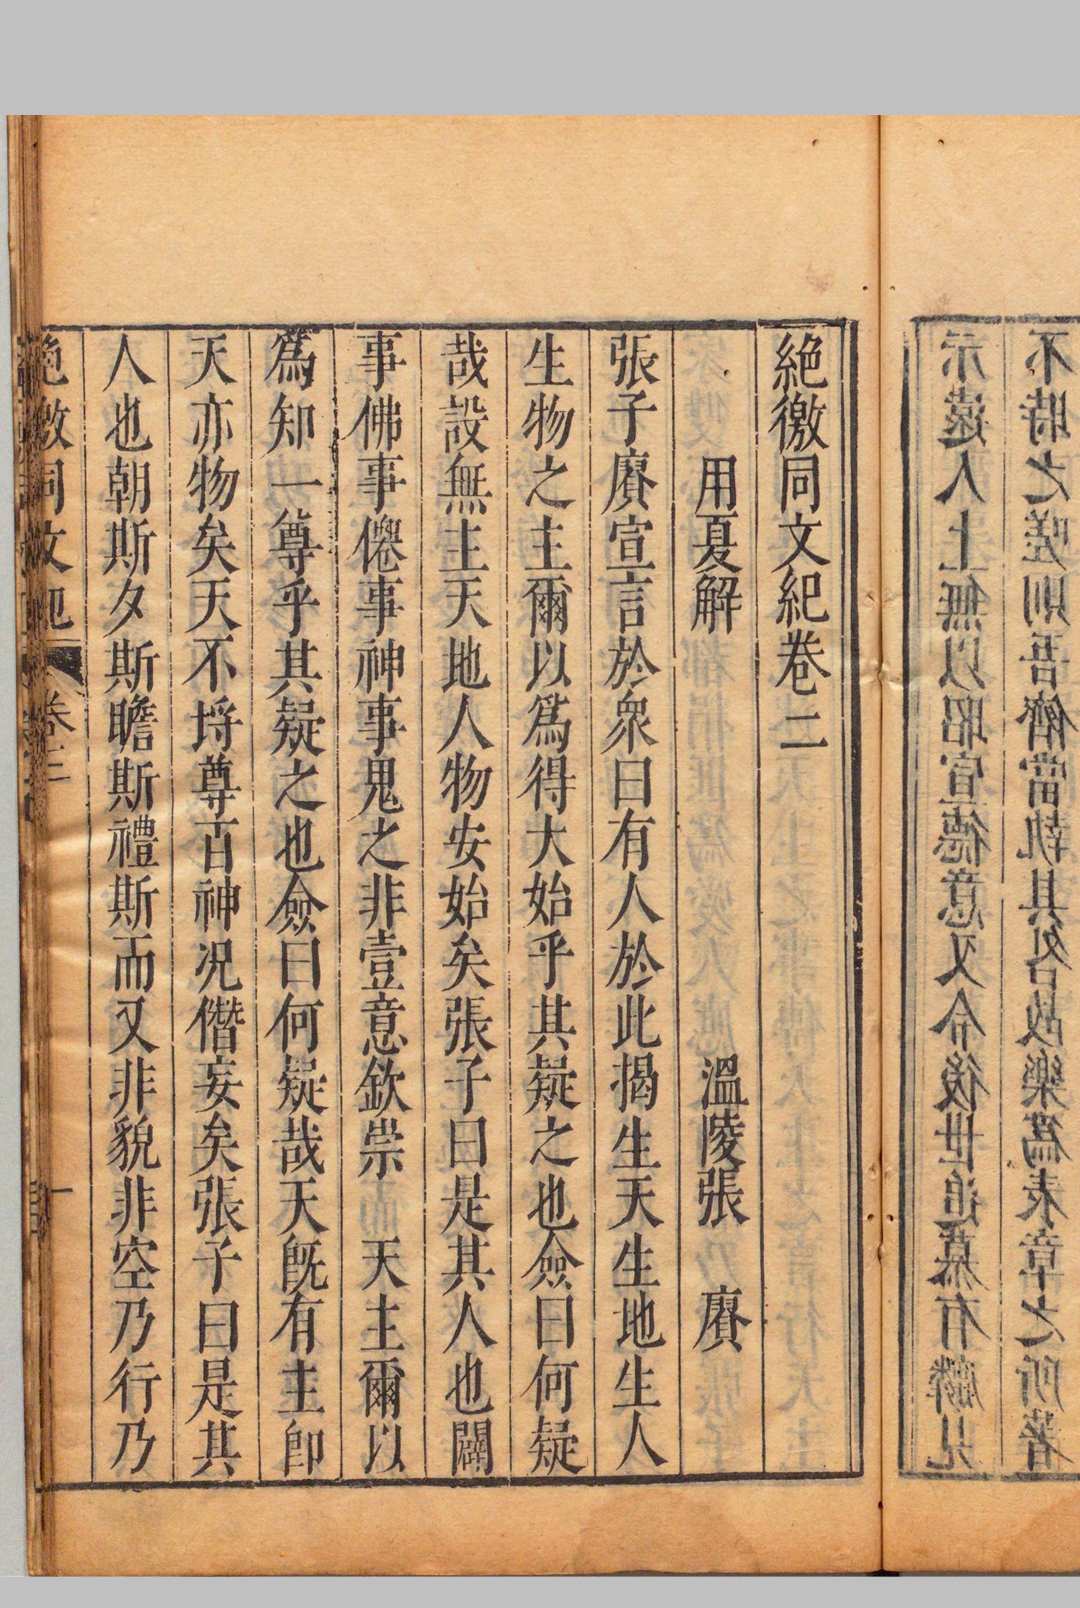 示遠人上無以昭宣德意又令後世追慕有麟見
不時之嗟則吾儕當執其咎故樂爲表章之所著
絕徼同文紀卷二
用夏解　溫陵張　賡
張子賡宣言於衆曰有人於此揭生天生地生人
生物之主爾以爲得大始乎其疑之也僉曰何疑
哉設無主天地人物安始矣張子曰是其人也闢
事佛事僊事神事鬼之非壹意欽崇　天主爾以
爲知一尊乎其疑之也僉曰何疑哉天旣有主卽
天亦物矣天不埒尊百神况僭妄矣張子曰是其
人也朝斯夕斯瞻斯禮斯而又非貌非空乃行乃
絕徼同文紀　卷二　一